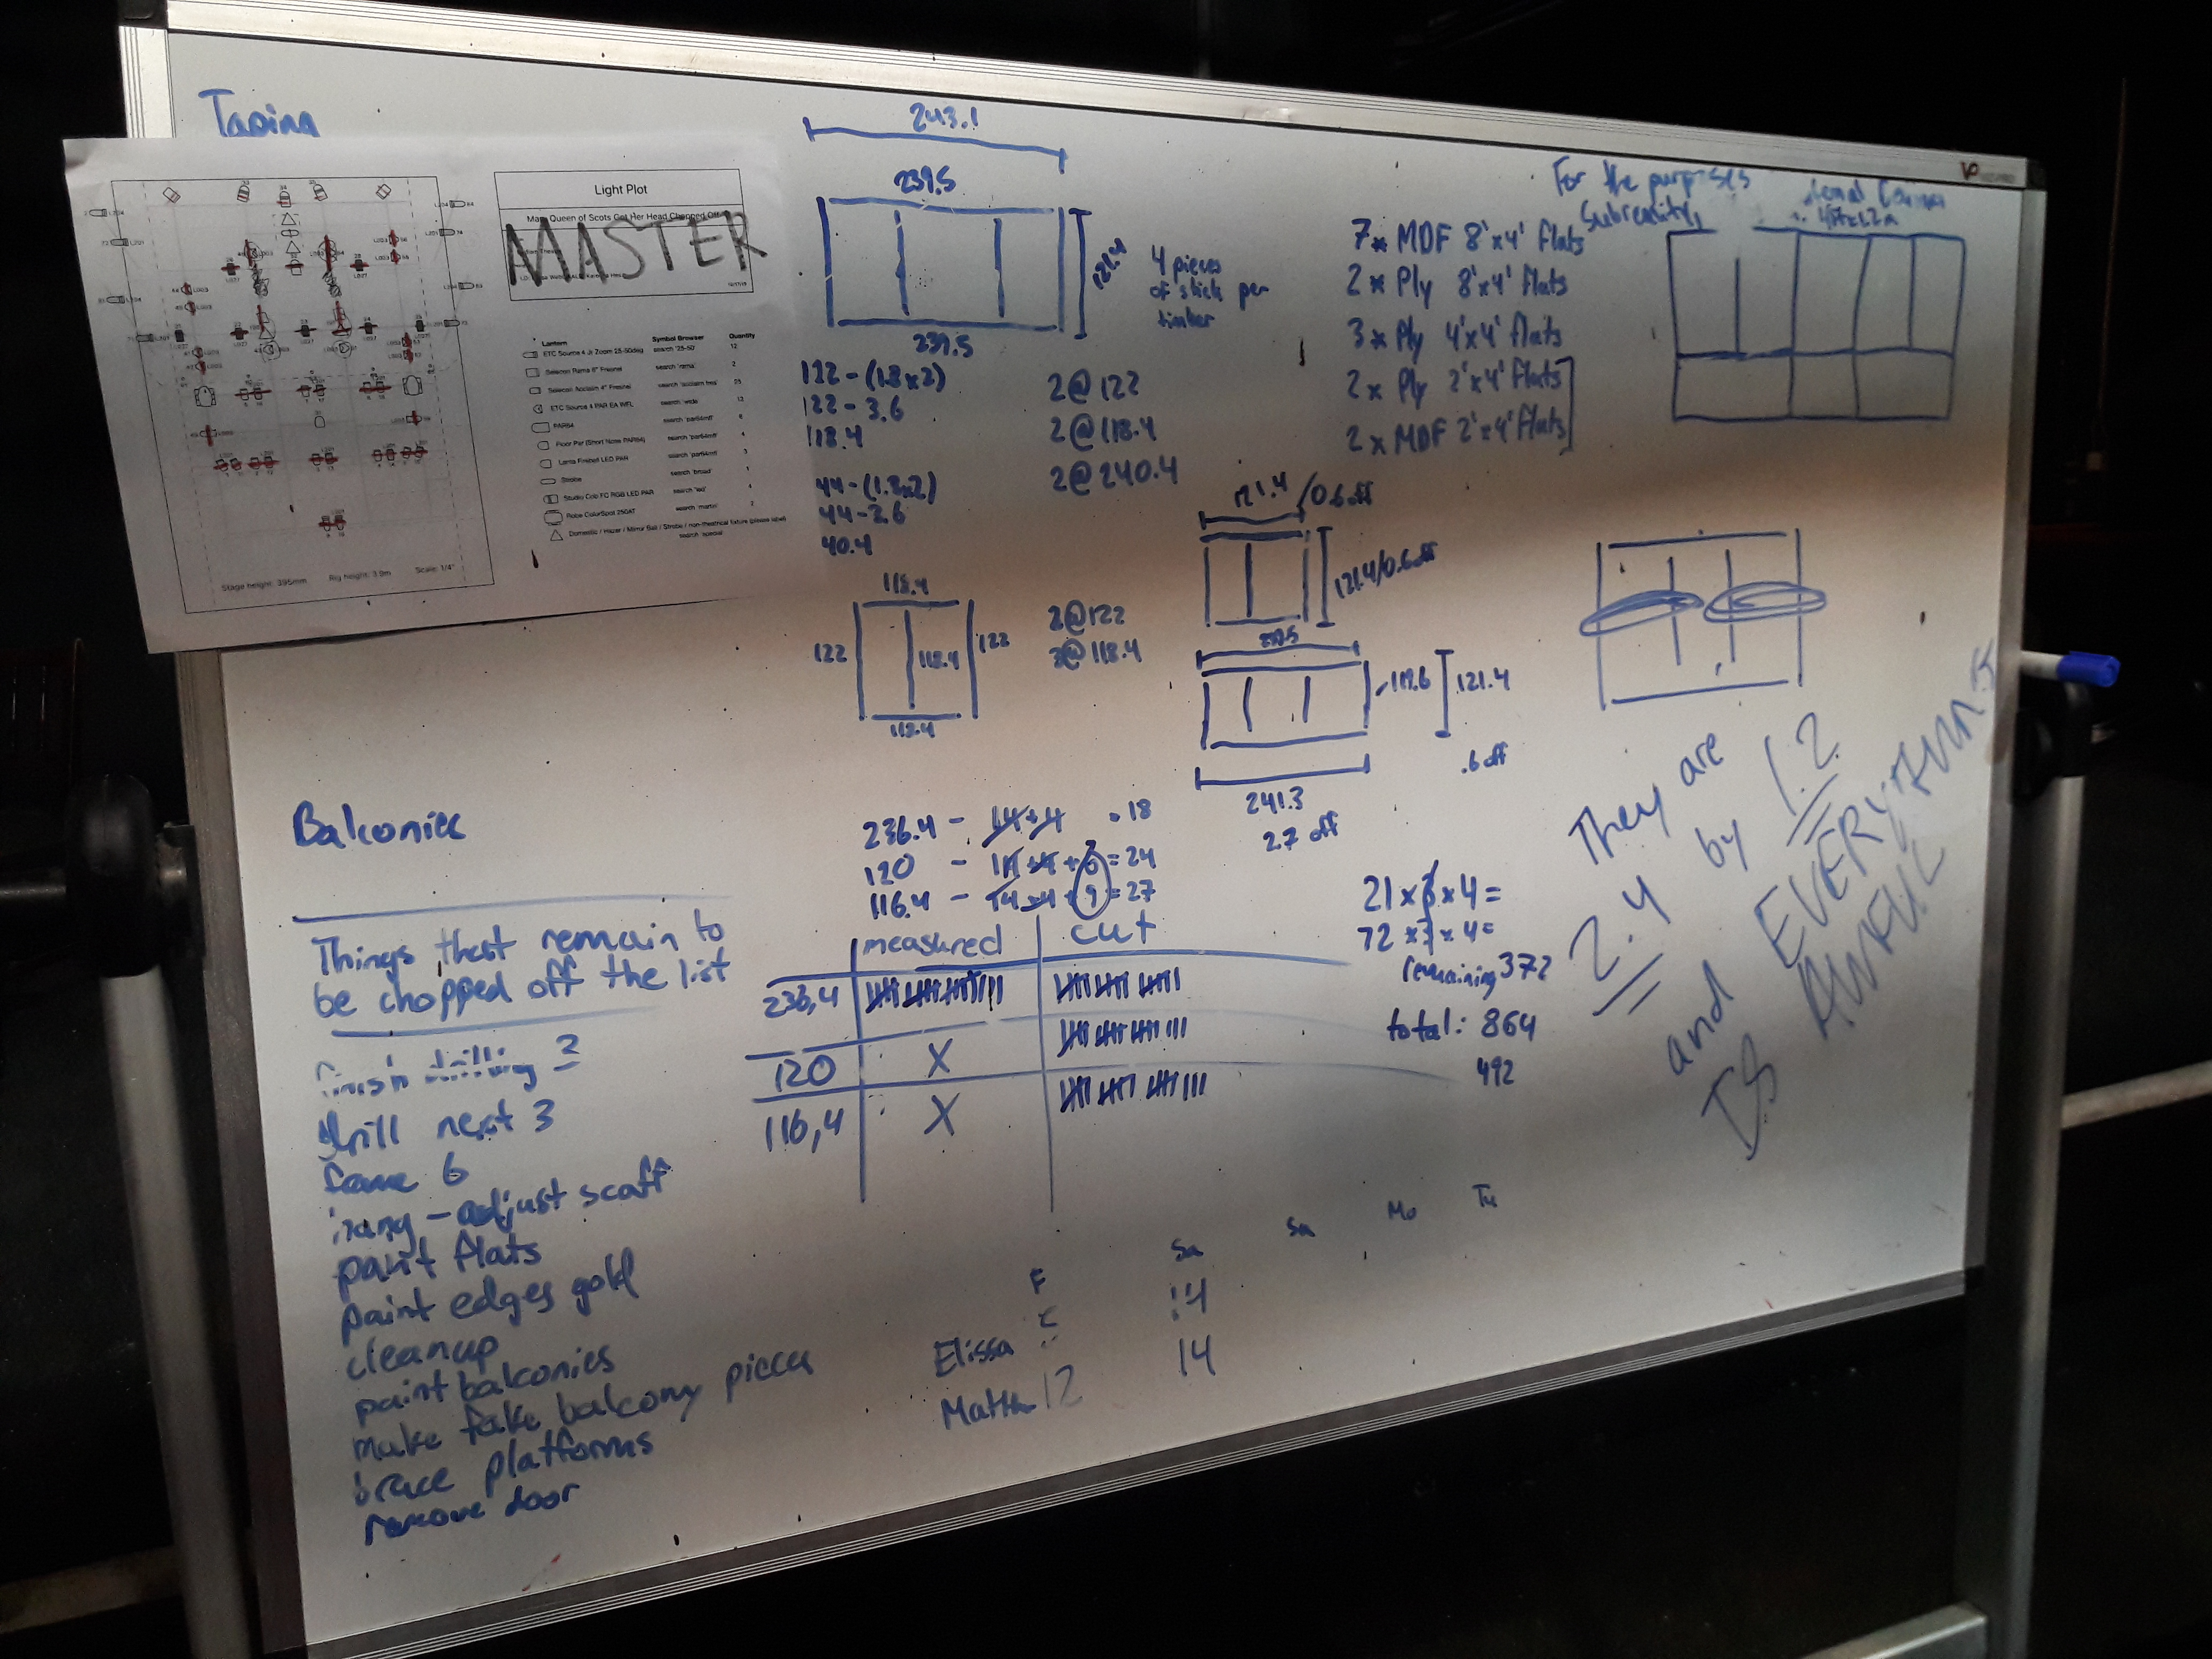 Taping
Light Plot
Mary Queen of Scots Got Her Head Chopped Off
MASTER
Lantern Symbol Browser Quantity
ETC Source 4 Jr Zoom 25-50deg search '25-50' 12
Selecon Rama 6" Fresnel search 'rama' 2
Selecon Acclaim 4" Fresnel 25
ETC Source 4 PAR EA WFL search 'wide' 12
PAR64 search 'par64mfl' 6
Floor Par (Short Nose PAR64) search 'par64mfl' 4
LED PAR search 'par64mfl' 3
Strobe search 'broad' 1
FC RGB LED PAR search 'led' 4
Robe ColorSpot 250AT search 'martin' 2
Domestic / Hazer / Mirror Ball / Strobe / non-theatrical fixture (please label)
search 'special'
Stage height: 395mm Rig height: 3.9m Scale: 1/4"
243.1
239.5
121.4
239.5
4 pieces
of stick per
timber
122-(1.8x2)
122-3.6
118.4
44-(1.8x2)
44-3.6
40.4
2@122
2@118.4
2@240.4
For the purposes
7x MDF 8'x4' flats
2x Ply 8'x4' flats
3x Ply 4'x4' flats
2x Ply 2'x4' flats
2x MDF 2'x4' flats
118.4
122
118.4
122
118.4
2@122
3@118.4
121.4/0.6 off
121.4/0.6 off
239.5
117.6
121.4
.6 off
241.3
2.7 off
They are
2.4 by 1.2
and EVERYTHING
IS AWFUL
Balconies
236.4 - 14+4 = 18
120 - 14+4+6=24
116.4 - 14+4+9=27
measured cut
236,4
120 X
116,4 X
21 x 3 x 4=
72 x 3 x 4=
remaining 372
total: 864
492
Things that remain to
be chopped off the list
finish drilling 3
drill next 3
frame 6
hang - adjust scaff
paint flats
paint edges gold
cleanup
paint balconies
make fake balcony pieces
brace platforms
remove door
F Sa Sa Mo Tu
Elissa 14
12 14